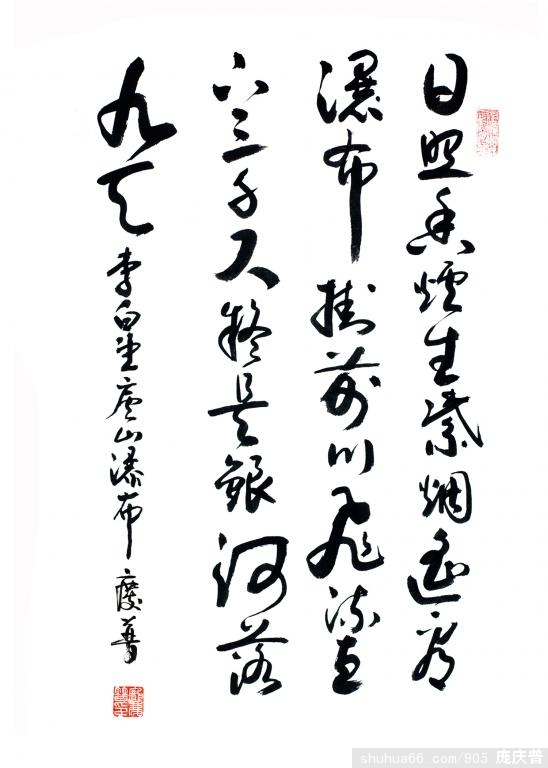 日照香爐生紫烟遥看
瀑布掛前川飛流直
下三千尺疑是銀河落
九天 李白望廬山瀑布 慶普
shuhua66.com/905 庞庆普